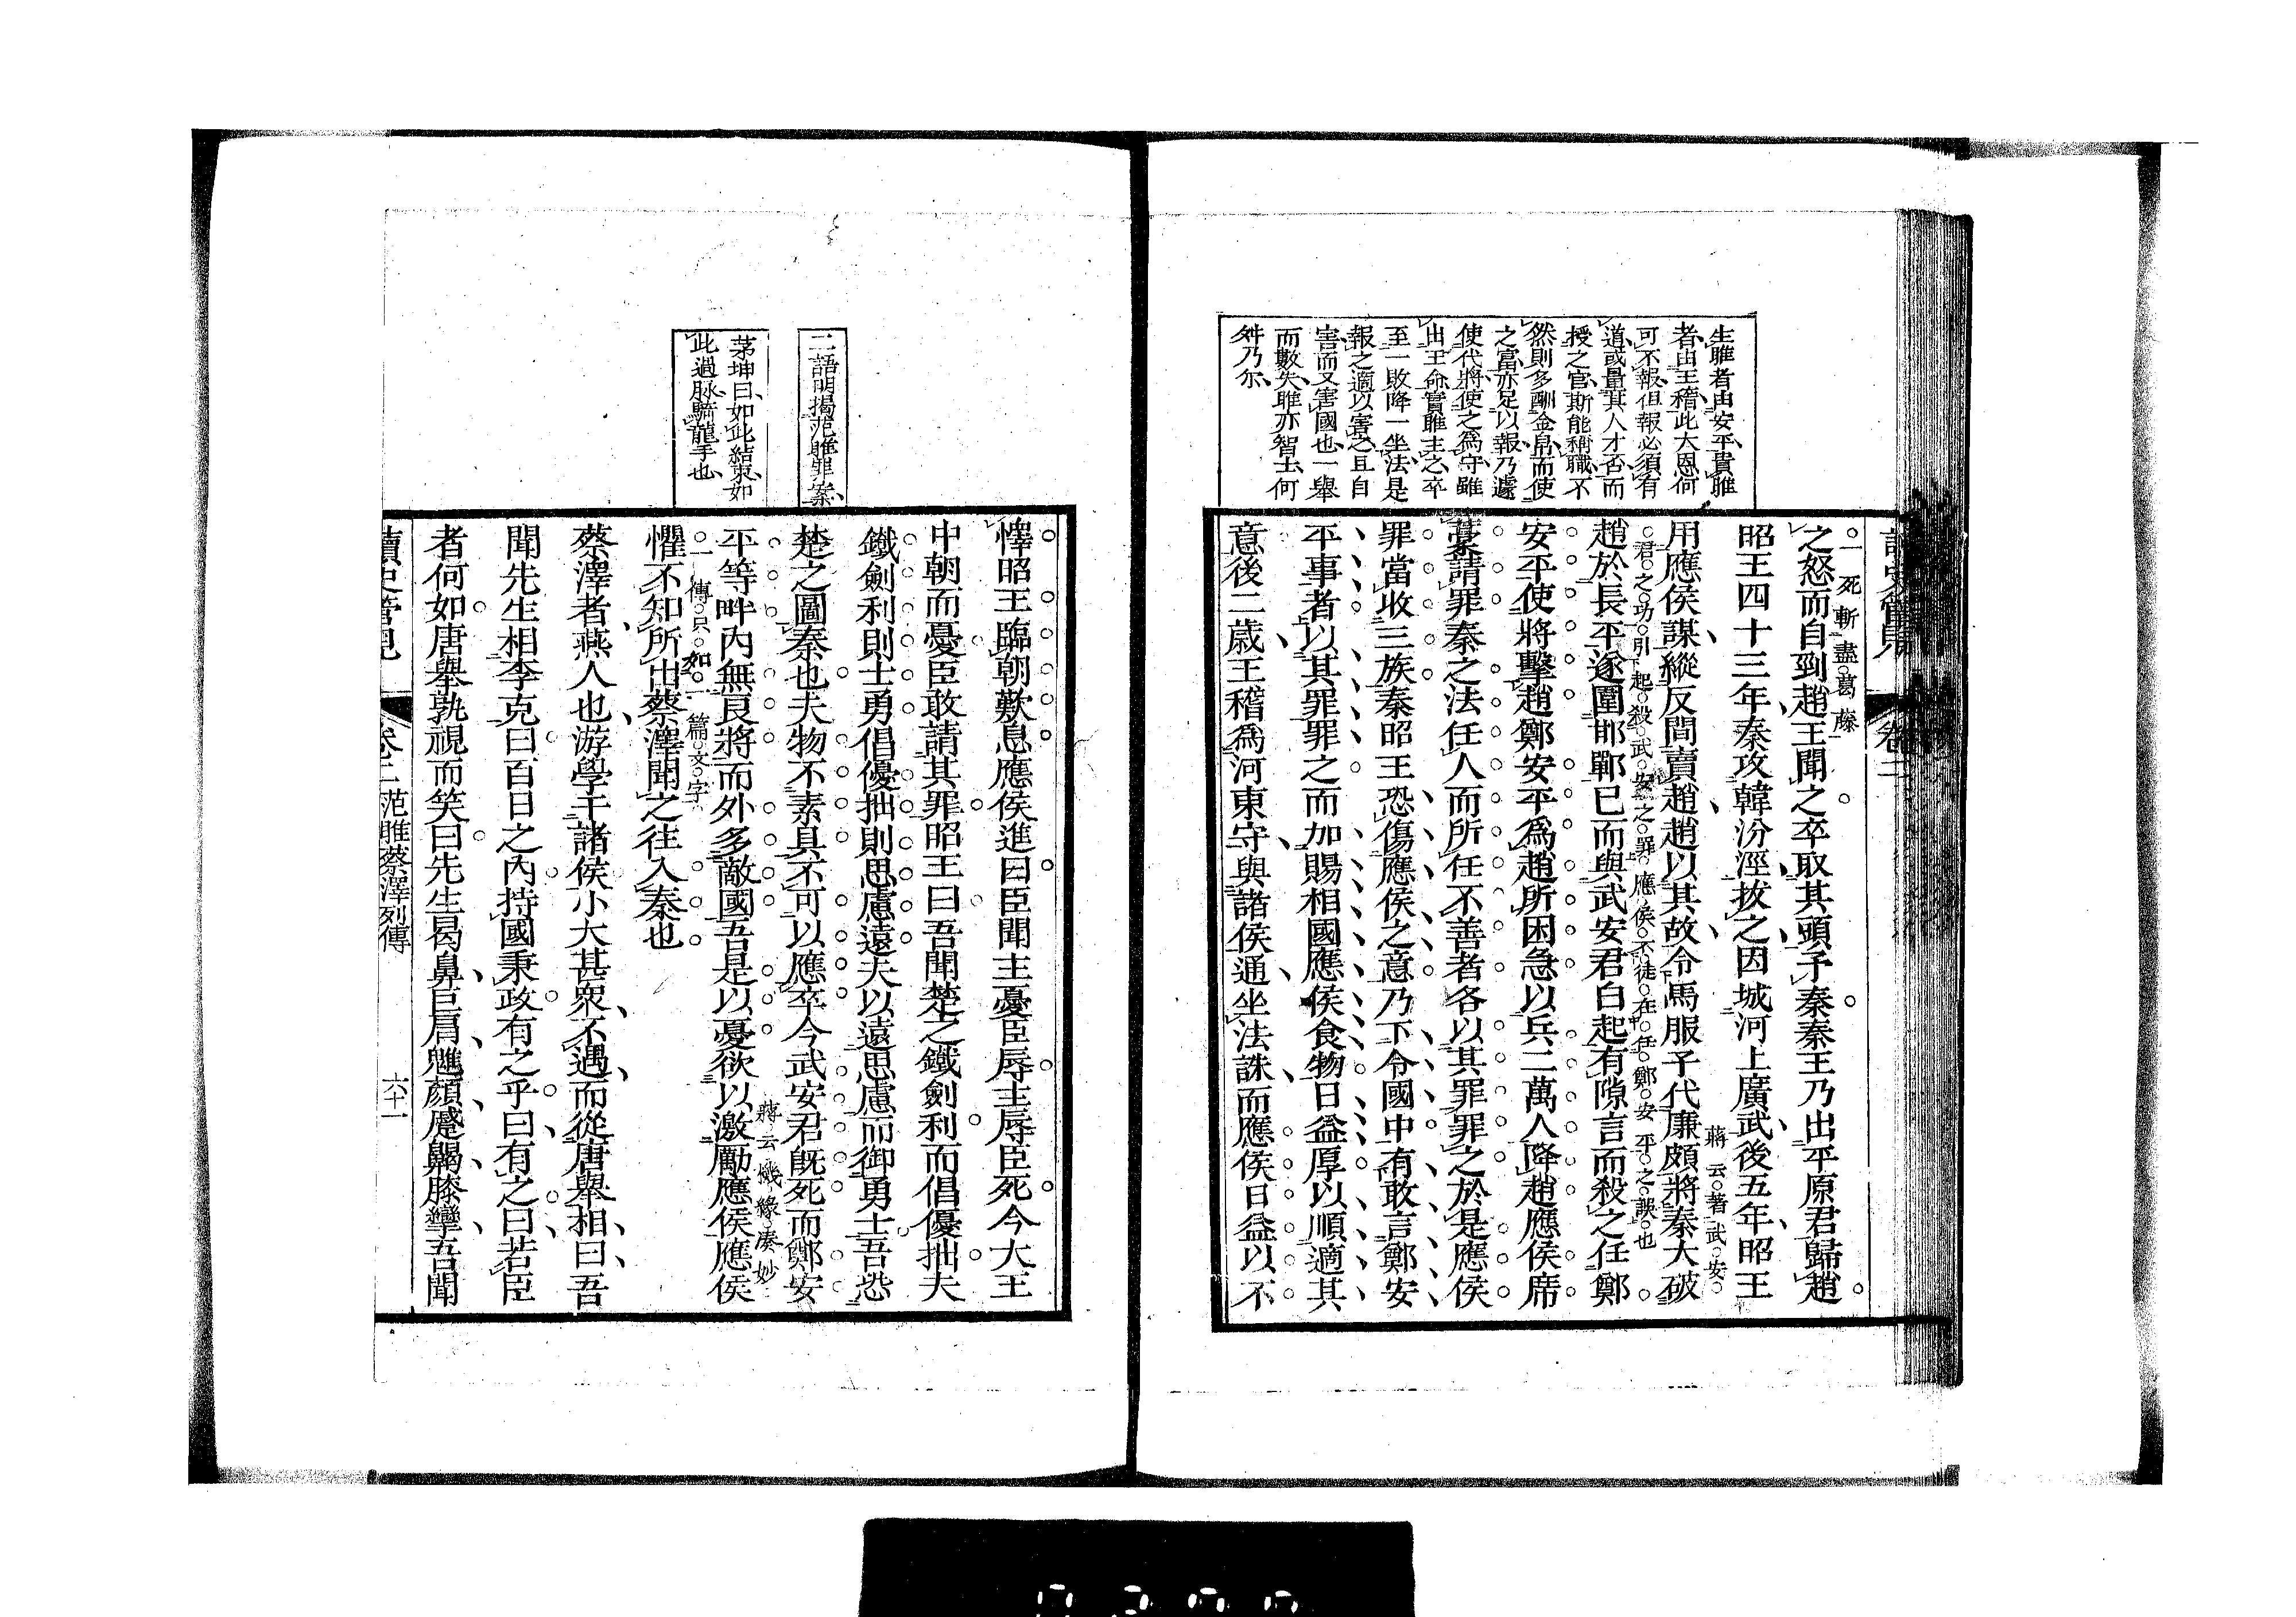 生睢者由安平貴睢
者由王稽此大恩何
可不報但報必須有
道或量其人才否而
授之官斯能稱職不
然則多酬金帛而使
之富亦足以報乃遽
使代將使之為守雖
出王命實睢主之卒
至一敗降一坐法是
報之適以害之且自
害而又害國也一舉
而數失睢亦智士何
舛乃尔
一死斬盡葛藤
之怒而自剄趙王聞之卒取其頭予秦秦王乃出平原君歸趙
昭王四十三年秦攻韓汾涇拔之因城河上廣武後五年昭王
蔣云著武安
用應侯謀縱反間賣趙趙以其故令馬服子代廉頗將秦大破
君之功引起殺武安之罪應侯不徒在任鄭安平之誤也
趙於長平遂圍邯鄲已而與武安君白起有隙言而殺之任鄭
安平使將擊趙鄭安平為趙所困急以兵二萬人降趙應侯席
藁請罪秦之法任人而所任不善者各以其罪罪之於是應侯
罪當收三族秦昭王恐傷應侯之意乃下令國中有敢言鄭安
平事者以其罪罪之而加賜相國應侯食物日益厚以順適其
意後二歲王稽為河東守與諸侯通坐法誅而應侯日益以不
二語明揭范睢罪案
茅坤曰如此結束如
此過脉騎龍手也
懌昭王臨朝歎息應侯進曰臣聞主憂臣辱主辱臣死今大王
中朝而憂臣敢請其罪昭王曰吾聞楚之鐵劍利而倡優拙夫
鐵劍利則士勇倡優拙則思慮遠夫以遠思慮而御勇士吾恐
楚之圖秦也夫物不素具不可以應卒今武安君既死而鄭安
蔣云機緣湊妙
平等畔內無良將而外多敵國吾是以憂欲以激勵應侯應侯
一傳只如一篇文字
懼不知所出蔡澤聞之往入秦也
蔡澤者燕人也游學干諸侯小大甚衆不遇而從唐舉相曰吾
聞先生相李克曰百日之內持國秉政有之乎曰有之曰若臣
者何如唐舉孰視而笑曰先生曷鼻巨肩魋顏蹙齃膝攣吾聞
讀史管見
卷二 范睢蔡澤列傳
六十一